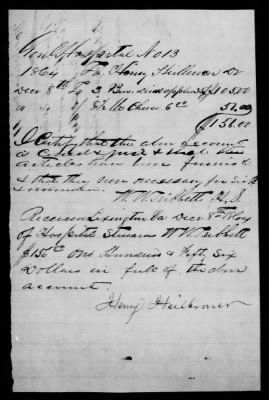 Genl Hospital No 13
1864 To Henry Heilbroner Dr
Decr 8th To 3 dried apples $105.00
" " " 8 6 cc 51.00
$156.00
I certify that the above account
is correct and just that the
articles have been furnished
& that they were necessary for Sick &
wounded
W. W. Tribbett H. S.
Received Lexington Va Decr 8th 1864
of Hospital Steward W W Tribbett
$156 00 One Hundred & Fifty Six
Dollars in full of the above
account.
Henry Heilbroner